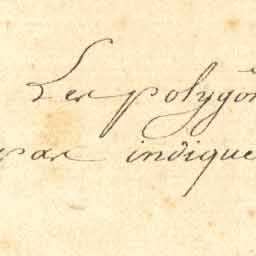 Les polygon
par indique